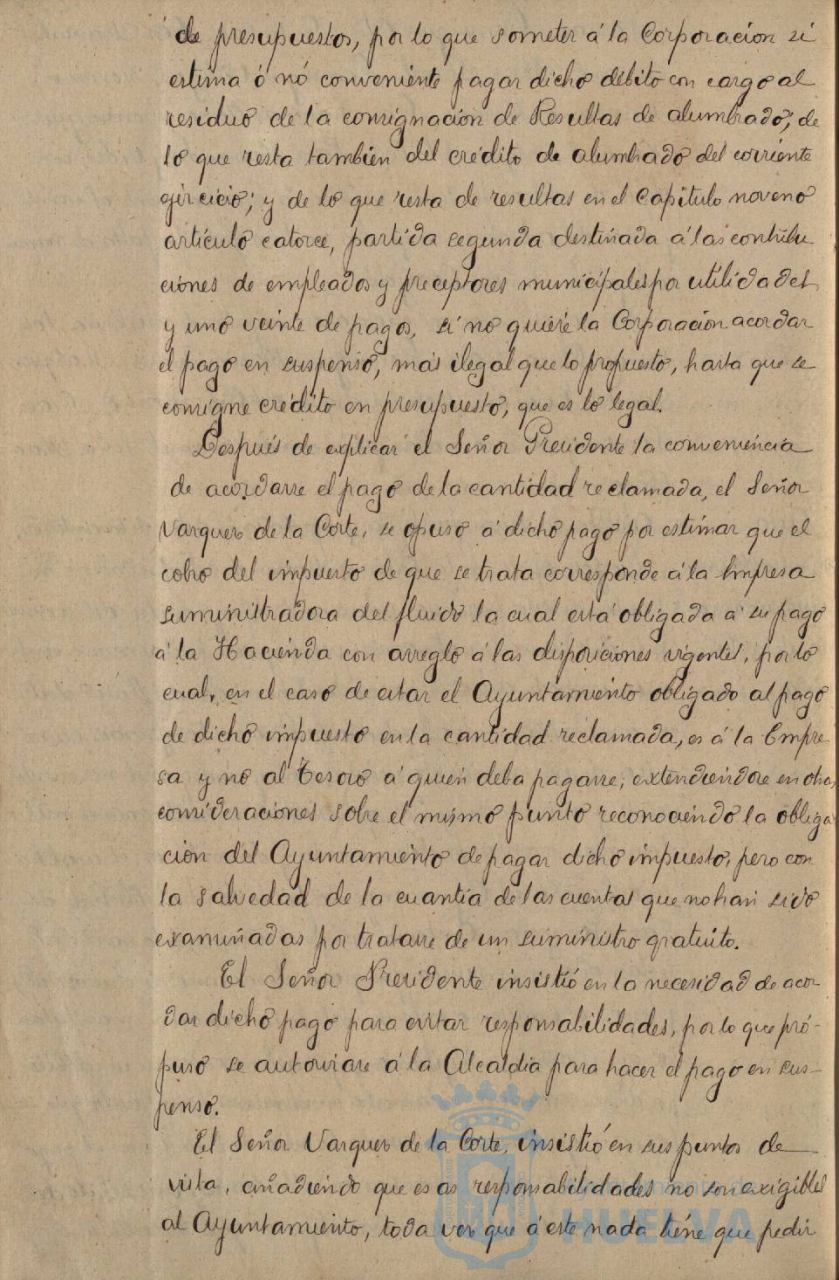 de presupuestos, por lo que someter á la Corporacion si
estima ó nó conveniente pagar dicho débito con cargo al
residuo de la consignación de Resultas de alumbrado, de
lo que resta también del crédito de alumbrado del corriente
ejircicio; y de lo que resta de resultas en el Capitulo noveno
artículo catorce, partida segunda destinada á las contribu
ciones de empleados y preceptores municipales por utilidades
y uno veinte de pagos, si no quiere la Corporación acordar
el pago en suspenso, más ilegal que lo propuesto, hasta que se
consigne crédito en presupuesto, que es lo legal.
Después de explicar el Señor Presidente la conveniencia
de acordarse el pago de la cantidad reclamada, el Señor
Vazquez de la Corte, se opuso á dicho pago por estimar que el
cobro del impuesto de que se trata corresponde á la Empresa
suministradora del fluido la cual está obligada á su pago
á la Hacienda con arreglo á las disposiciones vigentes, por lo
cual, en el caso de estar el Ayuntamiento obligado al pago
de dicho impuesto en la cantidad reclamada, es á la Empre
sa y no al Tesoro á quien deba pagarse; extendiéndose en otras
consideraciones sobre el mismo punto reconociendo la obliga
ción del Ayuntamiento de pagar dicho impuesto, pero con
la salvedad de la cuantía de las cuentas que no han sido
examinadas por tratarse de un suministro gratuito.
El Señor Presidente insistió en la necesidad de acor
dar dicho pago para evitar responsabilidades, por lo que pró-
puso se autorizase á la Alcaldia para hacer el pago en sus-
penso.
El Señor Vazquez de la Corte, insistió en sus puntos de
vista, añadiendo que esas responsabilidades no son exigibles
al Ayuntamiento, toda vez que á este nada tiene que pedir
HUELVA